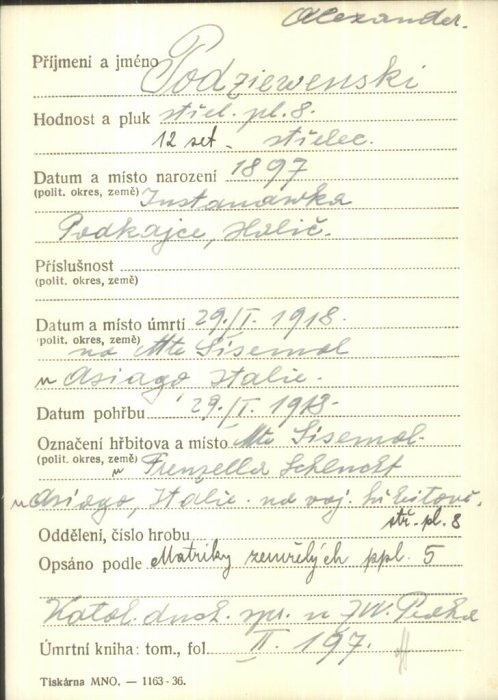 Alexander.
Příjmení a jméno Podziewenski
Hodnost a pluk střel. pl. 8.
12 set. střelec.
Datum a místo narození 1897
(polit. okres, země) Justanowka
Podkajce, Halič.
Příslušnost
(polit. okres, země)
Datum a místo úmrtí 29./I. 1918.
(polit. okres, země) na Mte Sisemol
u Asiago, Italie.
Datum pohřbu 29./I. 1918.
Označení hřbitova a místo Mte Sisemol.
(polit. okres, země) u Frenzella Schlucht
u Asiago, Italie. na voj. hřbitově.
stř. pl. 8
Oddělení, číslo hrobu
Opsáno podle Matriky zemřelých ppl. 5
Katol. duch. spr. u Praha
Úmrtní kniha: tom., fol. II. 197.
Tiskárna MNO. — 1163-36.